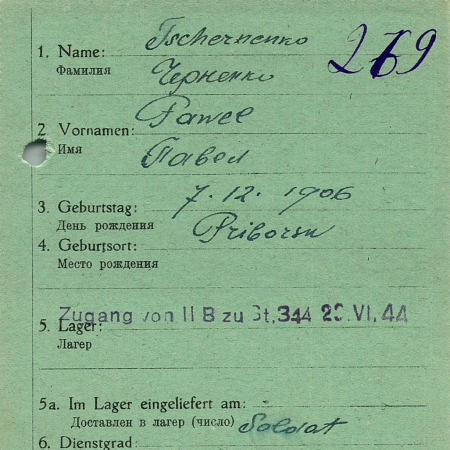 Tschernenko
1. Name:
269
Фамилия
Черненко
Pawel
2. Vornamen:
Имя
Павел
7. 12. 1906
3. Geburtstag:
День рождения
Priborsn
4. Geburtsort:
Место рождения
Zugang von II B zu St, 344 29. VI, 44
5. Lager:
Лагер
5a. Im Lager eingeliefert am:
Доставлен в лагер (число)
Soldat
6. Dienstgrad